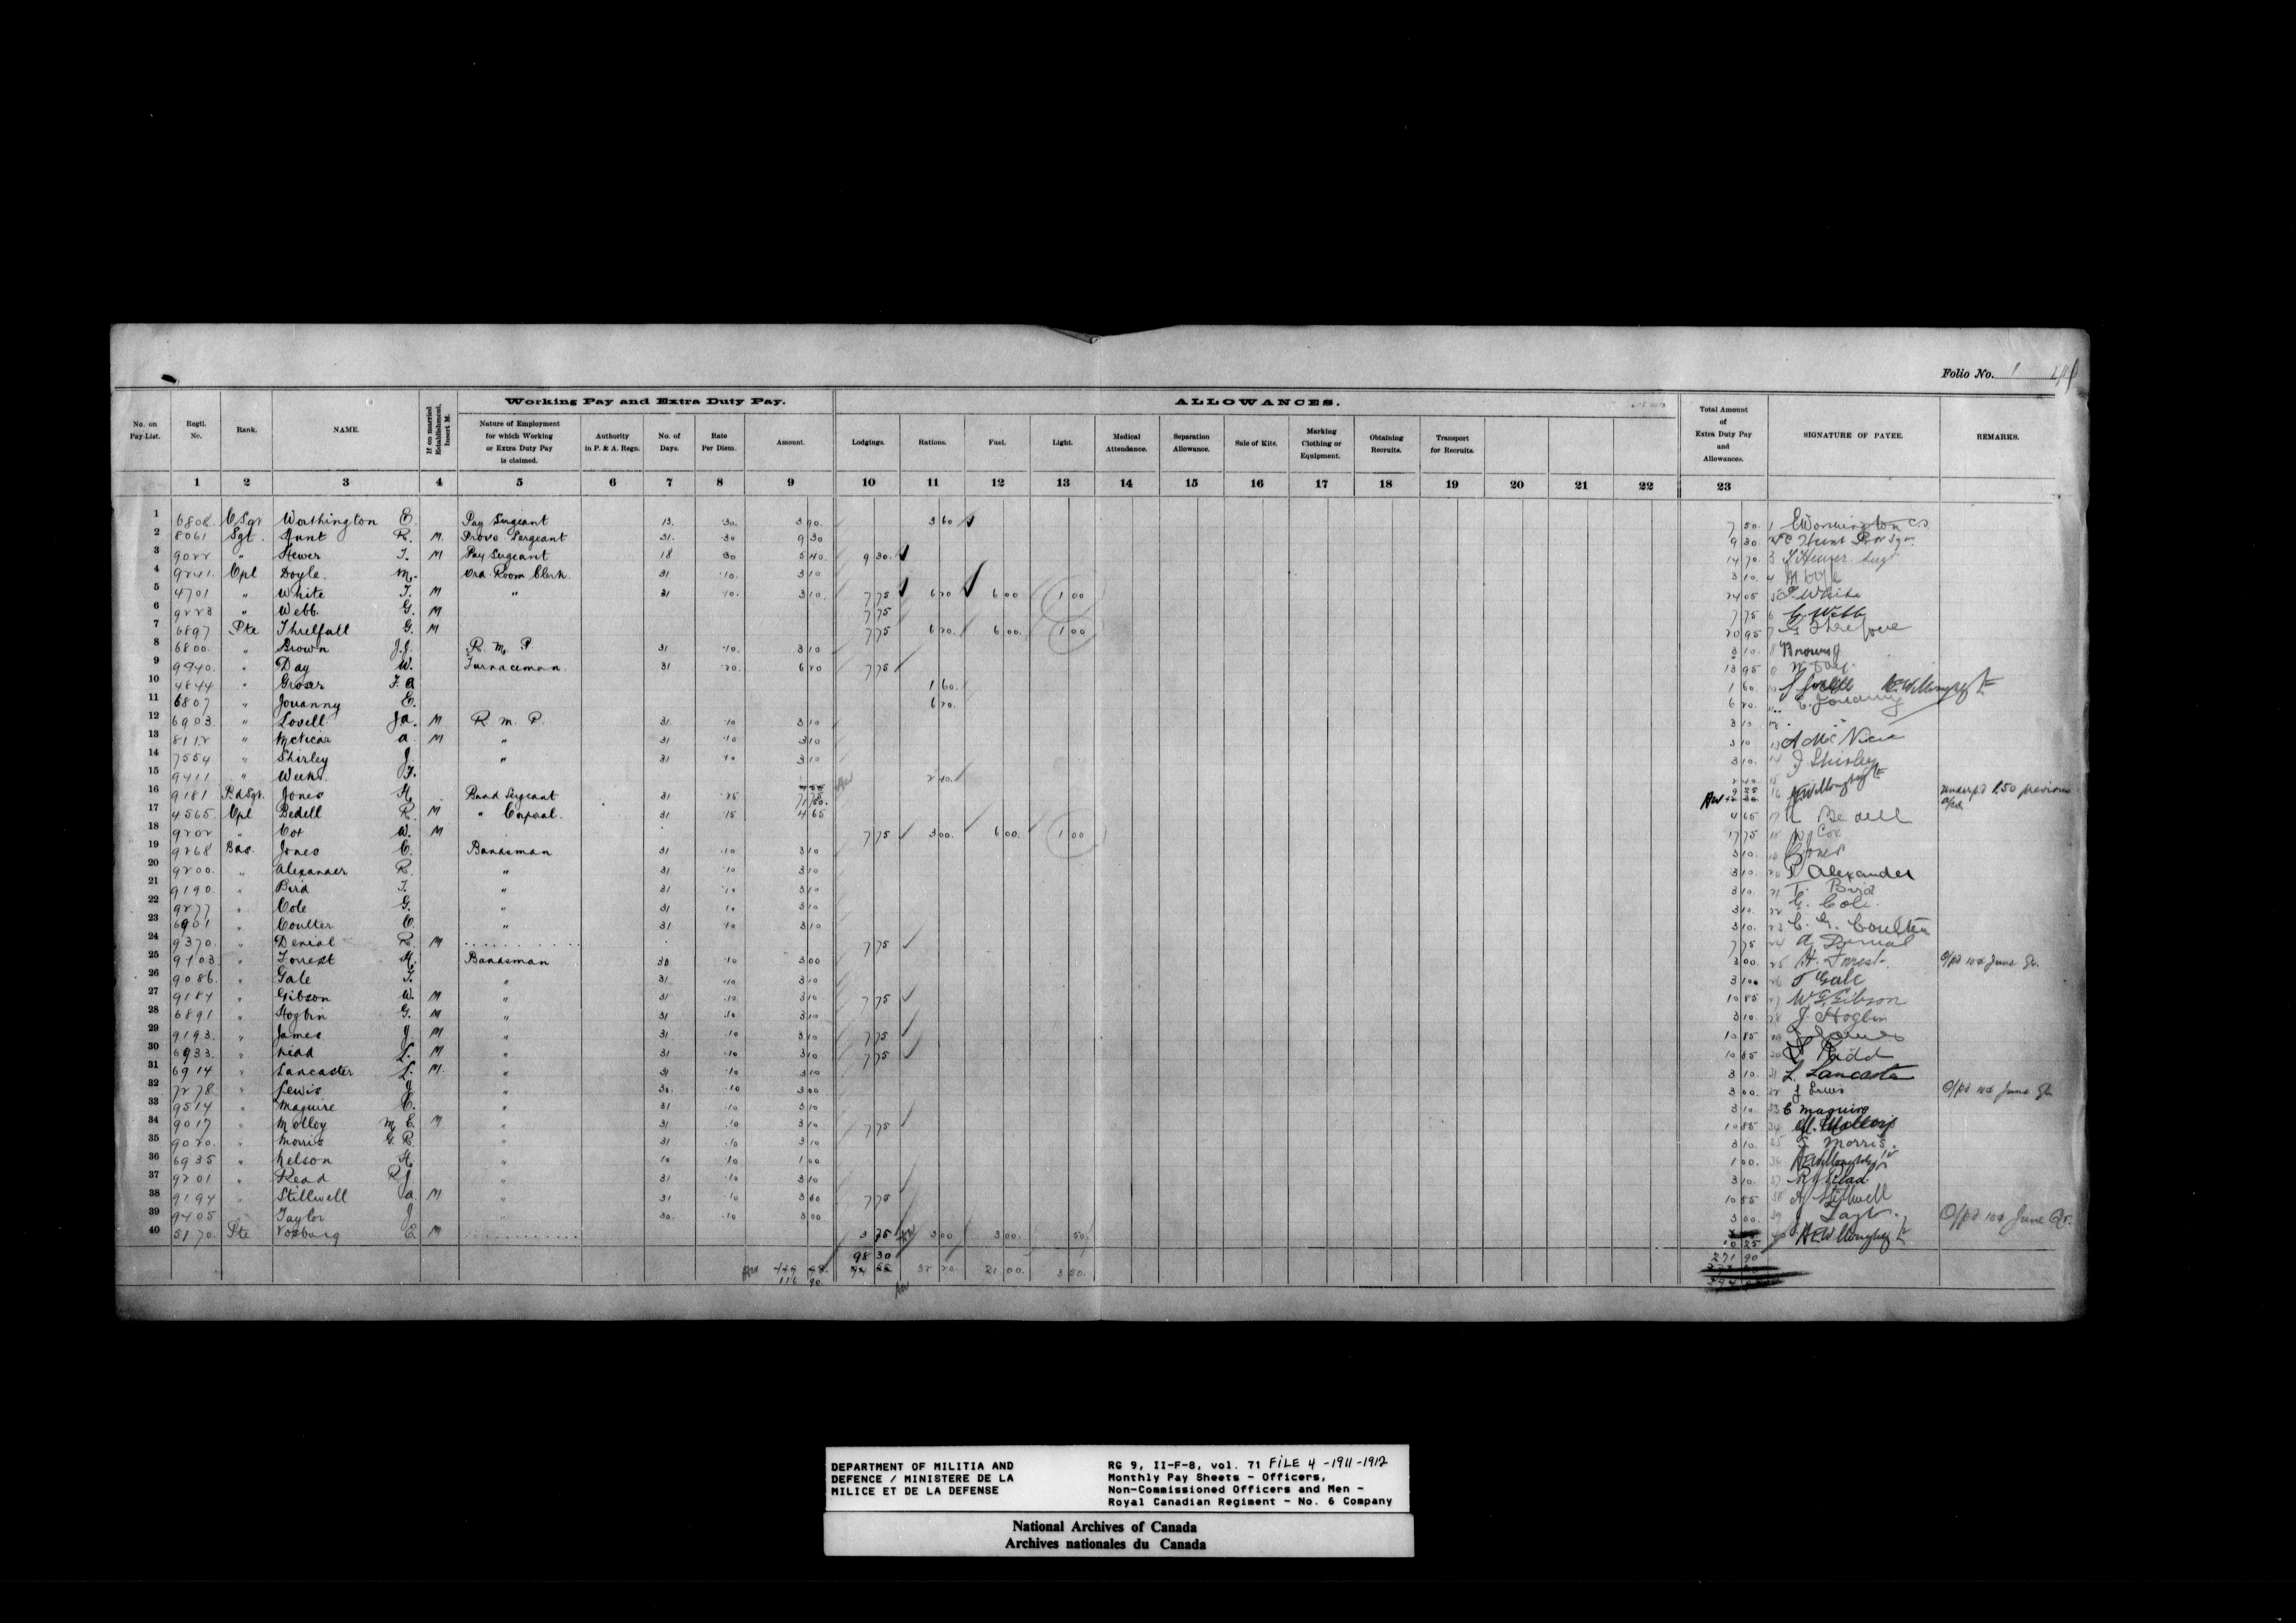 Folio No. 1
Working Pay and Extra Duty Pay.
ALLOWANCES.
No. on Pay-List. Regtl. No. Rank. NAME. If on married Establishment, Insert M. Nature of Employment for which Working or Extra Duty Pay is claimed. Authority in P. & A. Regn. No. of Days. Rate Per Diem. Amount. Lodgings. Rations. Fuel. Light. Medical Attendance. Separation Allowance. Sale of Kits. Marking Clothing or Equipment. Obtaining Recruits. Transport for Recruits. Total Amount of Extra Duty Pay and Allowances. SIGNATURE OF PAYEE. REMARKS.
1 2 3 4 5 6 7 8 9 10 11 12 13 14 15 16 17 18 19 20 21 22 23
1 6808 C Sgr Worthington E. Pay Sergeant 13. 30. 3 90. 3 60 7 50. 1 EWorthington C.S.
2 8061 Sgt. Hunt R. M. Provo Sergeant 31. 30 9 30 9 30. Hunt
3 9022 " Hewer T. M Pay Sergeant 18 30 5 40 9 30. 14 70. 3 T Hewer Sergt
4 9241. Cpl Doyle. M. Ord. Room Clerk. 31 .10. 3 10 3 10. 4
5 4701 " White T. M " 31 10. 3 10. 7 75 6 20 6 00 1 00 24 05 5 T. White
6 9223 " Webb. G. M 7 75 7 75 6 G. Webb
7 6897 Pte Threlfall G. M 7 75 6 20. 6 00. 1 00 20 95 7 G
8 6800. " Brown J.J. R. M. P. 31 .10. 3 10 3 10. 8 Brown J
9 9940. " Day W. Furnaceman. 31 .20. 6 20 7 75 13 95 9 W Day.
10 4844 " Groser F. A 1 60. 1 60. 10
11 6807 " Jouanny E. 6 20. 6 20. 11 E. Jouanny
12 6903. " Lovell J a. M R. M. P. 31. .10 3 10 3 10. 12
13 8112 " McVicar a. M " 31 .10 3 10 3 10. 13 A McVicar
14 7554 " Shirley J " 31 10 3 10 3 10. 14 J Shirley
15 9411 " Weeks. F. 2 40. 2 40. 15
16 9181 Bd Sgr. Jones H. Band Sergeant 31 .25 7 75 9 25 16 underpd 1.50 previous
17 4565 Cpl Bedell R. M " Corporal. 31 .15 4 65 4 65 17 R Bedell
18 9202 " Cox W. M 7 75 3 00. 6 00. 1 00 17 75 18 W Cox
19 9268 Bds. Jones C. Bandsman 31 .10 3 10 3 10. 19 CJones
20 9200. " Alexander R. " 31 .10 3 10 3 10. 20 R Alexander
21 9190. " Bird T. " 31 .10 3 10 3 10. 21 T. Bird
22 9277 " Cole G. " 31 10 3 10 3 10. 22 G. Cole.
23 6901 " Coulter C. " 31 .10 3 10 3 10. 23 C. G. Coulter
24 9370. " Denial R. M 7 75 7 75 24 Denial
25 9103. " Forrest H. Bandsman 30 .10 3 00 3 00. 25 H. Forrest. O/pd 10¢ June Qr.
26 9086. " Gale T. " 31. .10 3 10 3 10 26 T Gale
27 9184 " Gibson W. M " 31 .10. 3 10 7 75 10 85 27 W G Gibson
28 6891 " Hogbin G. M " 31 .10 3 10 3 10. 28 G. Hogbin
29 9193. " James J M " 31 .10 3 10 7 75 10 85 29 J James
30 6933. " Kidd L. M " 31 .10 3 10 7 75 10 85 30 L Kidd
31 6914 " Lancaster L. M " 31 .10 3 10 3 10. 31 L. Lancaster
32 7278. " Lewis J " 30. .10 3 00 3 00. 32 J Lewis O/pd 10¢ June Qr
33 9514 " Maguire C. " 31 .10 3 10 3 10. 33 C Maguire
34 9017 " Molloy M E. M " 31 .10 3 10 7 75 10 85 34 M. Molloy
35 9020. " Morris G. R. " 31 .10 3 10 3 10. 35 G. Morris.
36 6935 " Nelson H. " 10 .10 1 00 1 00. 36
37 9201 " Read R J " 31 .10 3 10 3 10. 37 R J Read
38 9194 " Stillwell a. M " 31 .10 3 10 7 75 10 85 38 A Stillwell
39 9405 " Taylor J " 30. .10 3 00 3 00. 39 J Taylor. O/pd 10¢ June Qr.
40 5170. Pte Vosburg E. M 3 75 3 00 3 00. 50 10 25 40
98 30
32 20. 21 00. 3 50. 271 90
116 90
DEPARTMENT OF MILITIA AND
DEFENCE / MINISTERE DE LA
MILICE ET DE LA DEFENSE
RG 9, II-F-8, vol. 71 FILE 4 -1911-1912
Monthly Pay Sheets - Officers,
Non-Commissioned Officers and Men -
Royal Canadian Regiment - No. 6 Company
National Archives of Canada
Archives nationales du Canada